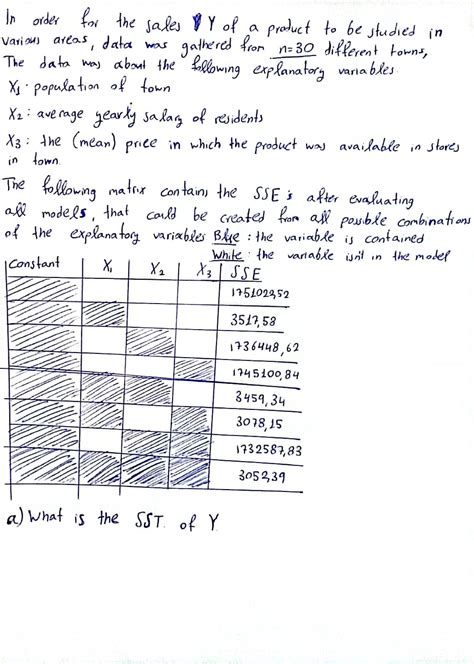 In order for the sales Y of a product to be studied in
various areas, data was gathered from n=30 different towns,
The data was about the following explanatory variables
X₁: population of town
X₂: average yearly salary of residents
X₃: the (mean) price in which the product was available in stores
in town.
The following matrix contains the SSE's after evaluating
all models, that could be created from all possible combinations
of the explanatory variables Blue: the variable is contained
White: the variable isn't in the model
Constant X₁ X₂ X₃ SSE
1751029,52
3517,58
1736448,62
1745100,84
3459,34
3078,15
1732587,83
3052,39
a) What is the SST of Y.